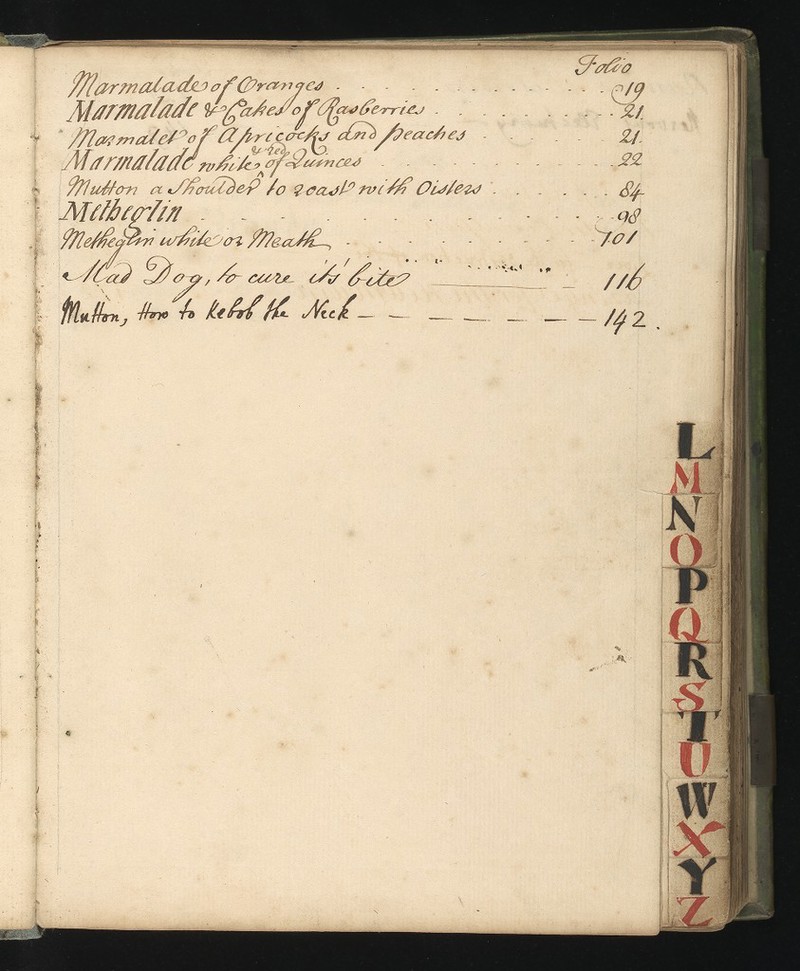 Folio
Marmalade of Oranges . . . . . . . . . . . . 19
Marmalade & Cakes of Rasberries . . . . . . . . 21
Marmalet of Apricocks and Peaches . . . . . . 21.
& red
Marmalade white ^ of Quinces . . . . . . . . . 22
Mutton a Shoulder to roast with Oisters . . . . . . 84
Metheglin . . . . . . . . . . . 98
Metheglin white or Meath . . . . . . . . 101
Mad Dog, to cure its' bite ——— 116
Mutton, How to Kebob the Neck — — — — — — 142.
L
M
N
O
P
Q
R
S
T
U
W
X
Y
Z